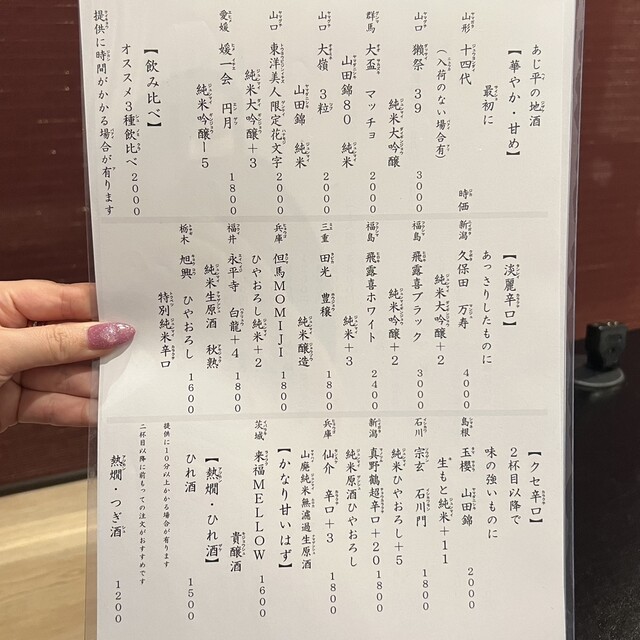 あじ平の地酒
【華やか・甘め】
最初に
山形 十四代 時価
（入荷のない場合有）
山口 獺祭 39
純米大吟醸 3000
群馬 大盃 マッチョ
山田錦80 純米 2000
山口 大嶺 3粒
山田錦 純米 2000
山口 東洋美人限定花文字
純米大吟醸+3 2000
愛媛 媛一会 円月
純米吟醸−5 1800
【飲み比べ】
オススメ3種飲比べ 2000
提供に時間がかかる場合が有ります
【淡麗辛口】
あっさりしたものに
新潟 久保田 万寿
純米大吟醸+2 4000
福島 飛露喜ブラック
純米吟醸+2 3000
福島 飛露喜ホワイト
純米+3 2400
三重 田光 豊穣
純米醸造 1800
兵庫 但馬MOMIJI
ひやおろし純米+2 1800
福井 永平寺 白龍+4
純米生原酒 秋熟 1800
栃木 旭興 ひやおろし
特別純米辛口 1600
【クセ辛口】
2杯目以降で
味の強いものに
島根 玉櫻 山田錦
生もと純米+11 2000
石川 宗玄 石川門
純米ひやおろし+5 1800
新潟 真野鶴超辛口+20
純米原酒ひやおろし 1800
兵庫 仙介 辛口+3
山廃純米無濾過生原酒 1800
【かなり甘いはず】
茨城 来福MELLOW
貴醸酒 1600
【熱燗・ひれ酒】
ひれ酒 1500
提供に10分以上かかる場合が有ります
二杯目以降に前もっての注文がおすすめです
熱燗・つぎ酒 1200